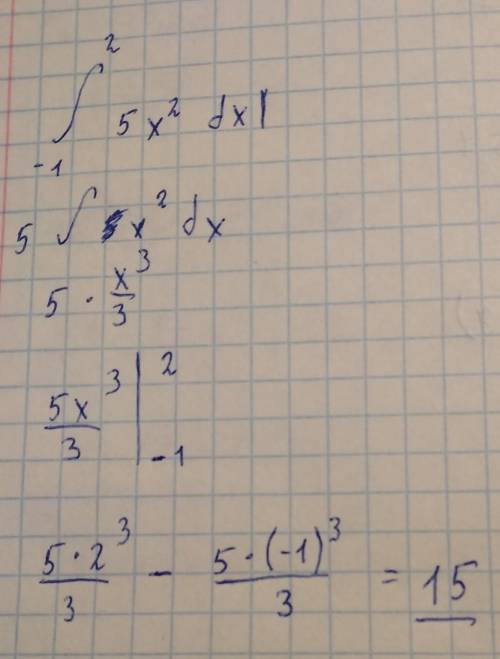 ∫₋₁² 5x² dx|
5 ∫ x² dx
5 · x³/3
5x³/3 |₋₁²
5·2³/3 - 5·(-1)³/3 = 15